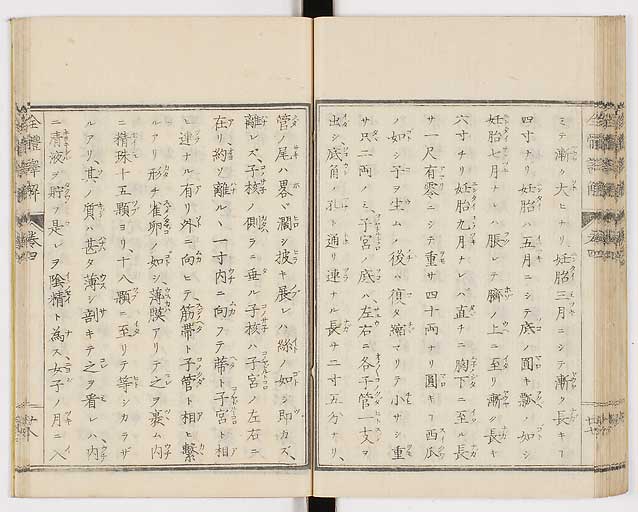 ミテ漸ク大ヒナリ、妊胎三月ニシテ漸ク長キフ
四寸ナリ妊胎ハ五月ニシテ底ノ圓キ瓢ノ如シ
妊胎七月ナレハ脹レテ臍ノ上ニ至リ漸シ長サ
六寸ナリ妊胎九月ナレハ直チニ胸下ニ至ル長
サ一尺有零ニシテ重サ四十両ナリ圓キフ西瓜
ノ如シ子ヲ生ムノ後ハ復タ縮マリテ小サシ重
サ只二両ノミ、子宮ノ底ハ、左右ニ各子管一支ヲ
出シ底角ノ孔ト通リ連ナル長サ二寸五分ナリ、
管ノ尾ハ畧ヾ濶シ披キ展レハ絲ノ如シ即カズ、
離レズ、子核ノ側ラニ垂ル子核ハ子宮ノ左右ニ
在リ、約ソ離ル、一寸内ニ向フテ蒂ト子宮ト相
ヒ連ナル有リ外ニ向ヒテ筋帶ト子管ト相ヒ繫
ルアリ形チ雀卵ノ如シ、薄膜アリテ之ヲ裹ム内
ニ精珠十五顆ヨリ、十八顆ニ至リテ等シカラザ
ルアリ、其ノ質ハ甚タ薄シ剖キテ之ヲ看レハ、内
ニ青液ヲ貯フ是レヲ陰精ト為ス女子ノ月ニ入
全體譯解
巻四